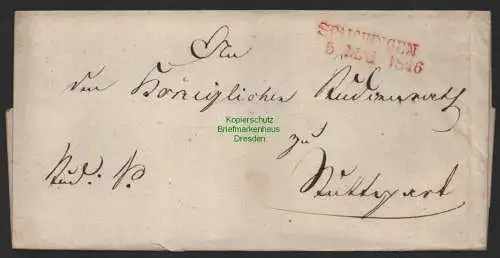 SPAICHINGEN
5. MAI 1846
An
den Königlichen Studienrath
Kopierschutz
Briefmarkenhaus
Dresden
zu
Stud: S.
Stuttgart